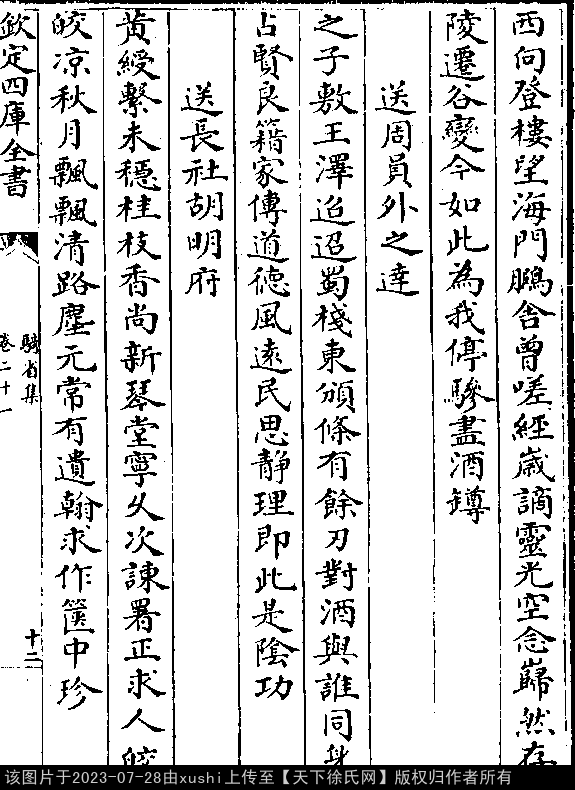 西向登樓望海門鵬舍曾嗟經歲謫靈光空念巋然存
陵遷谷變今如此為我停驂盡酒罇
送周員外之達
之子敷王澤迢迢蜀棧東頒條有餘刃對酒與誰同身
占賢良籍家傳道徳風遠民思静理即此是陰功
送長社胡明府
黄綬繫未穏桂枝香尚新琴堂寧久次諌署正求人皎
皎凉秋月飄飄清路塵元常有遺翰求作篋中珍
欽定四庫全書
騎省集
卷二十一
十二
该图片于2023-07-28由xushi上传至【天下徐氏网】版权归作者所有